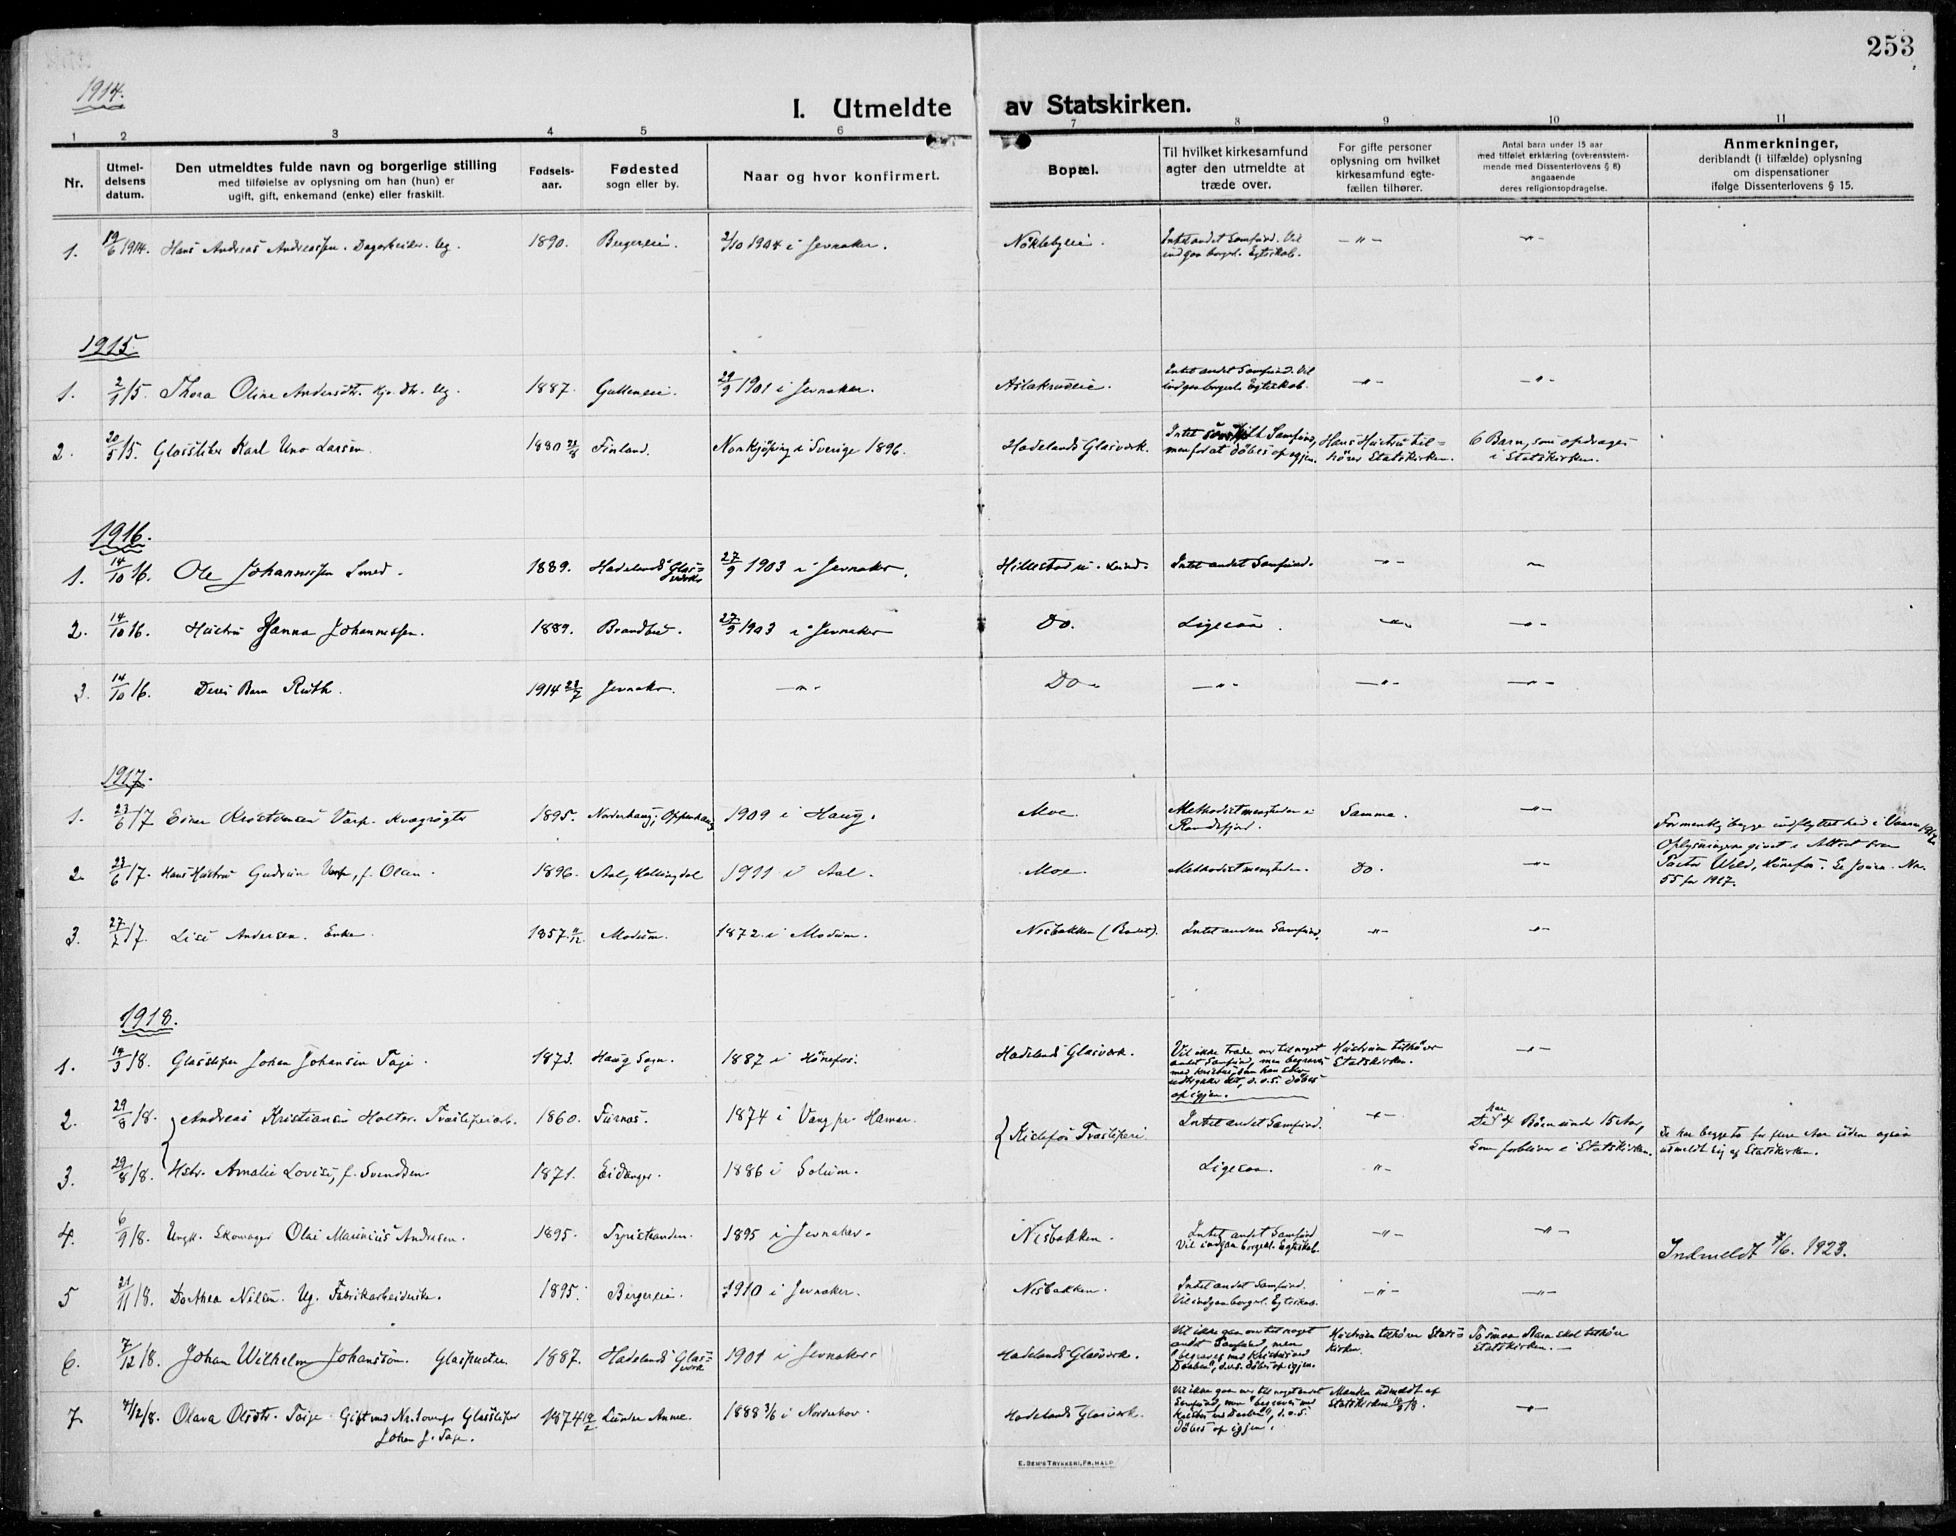 253
1914.
I. Utmeldte av Statskirken.
1 2 3 4 5 6 7 8 9 10 11
Nr.
Utmel-
delsens
datum.
Den utmeldtes fulde navn og borgerlige stilling
med tilføielse av oplysning om han (hun) er
ugift, gift, enkemand (enke) eller fraskilt.
Fødsels-
aar.
Fødested
sogn eller by.
Naar og hvor konfirmert.
Bopæl.
Til hvilket kirkesamfund
agter den utmeldte at
træde over.
For gifte personer
oplysning om hvilket
kirkesamfund egte-
fællen tilhører.
Antal barn under 15 aar
med tilføiet erklæring (overensstem-
mende med Dissenterlovens § 8)
angaaende
deres religionsopdragelse.
Anmerkninger,
deriblandt (i tilfælde) oplysning
om dispensationer
ifølge Dissenterlovens § 15.
1. 19/6 1914. Hans Andreas Andreassen. Dagarbeider. Ug. 1890. Bergereie. 2/10 1904 i Jevnaker. Nöklebyeie. Intet andet Samfund. Vil
indgaa borgerl. Egteskab. — " — — " —
1915.
1. 2/1 15. Thora Oline Andersdtr. Ug. 1887. Gulleneie. 29/9 1901 i Jevnaker. Aslakrudeie. Intet andet Samfund. Vil
indgaa borgerl. Egteskab. — " — — " —
2. 20/5 15. Glassliber Karl Uno Larsen. 1880 Finland. Norkjöping i Sverige 1896. Hadelands Glasværk. Intet Samfund,
men for at döbes op igjen. Hans Hustru til=
hörer Statskirken. 6 Barn, som opdrages
i Statskirken.
1916.
1. 14/10 16. Ole Johannessen Smed. 1889. Hadelands Glas=
værk. 27/9 1903 i Jevnaker. Intet andet Samfund. — " —
2. 14/10 16. Hustru Hanna Johannessen. 1889. Brandbu. 27/9 1903 i Jevnaker Do. Ligesaa. — " — — " —
3. 14/10 16. Deres Barn Ruth. 1914 Jevnaker. — " — Do — " — — " — — " —
1917.
1. 23/6 17 Einar Kristensen Varp. Kvægrögter 1895. Norderhaug, Oppenhaug 1909 i Haug. Moe. Methodistmenigheden i
Randsfjord. Samme. — " — Formentlig begge indflyttet hid i Vaar 1917
Oplysningerne givet i Attest fra
Pastor Wild, Hönefos. Se Journ. No.
55 for 1917.
2. 23/6 17. Hans Hustru Gudrun Varp, f. Olsen. 1896. Aal, Hallingdal 1911 i Aal. Moe. Methodistmenigheden. Do. — " —
3. 27/7 17. Lise Andersen. Enke. 1857 Modum. 1872 i Modum. Nisbakken Intet andet Samfund. — " — — " —
1918.
1. 19/3 18. Glassliper Johan Johansen Taje. 1873. Haug Sogn. 1887 i Hönefos. Hadelands Glasværk. Vil ikke træde over til noget
andet Samfund, men begraves
med Kristus, som han selv
udtrykker det, d.v.s. döbes
op igjen. Hustruen tilhörer
Statskirken. — " —
2. 29/8 18. Andreas Kristiansen Holter. Træsliperiarb. 1860. Furnes. 1874 i Vang pr. Hamar. Kistefos Træsliperi. Intet andet Samfund. — " — De har 4 Börn under 15 Aar,
Som forbliver i Statskirken. De har begge to for flere Aar siden ogsaa
utmeldt sig af Statskirken.
3. 29/8 18. Hstr. Amalie Lovise, f. Svendsen. 1871. Eidanger. 1886 i Solum. Ligesaa. — " —
4. 6/9 18. Ungk. Skomager Olai Marinius Andresen. 1895. Tyristranden. 1895 i Jevnaker. Nisbakken. Intet andet Samfund
Vil indgaa borgerl. Egteskab. — " — — " — Indmeldt 1923.
5 21/11 18. Dorthea Nilsen. Ug. Fabrikarbeiderske. 1895. Bergereie. 1910 i Jevnaker. Nisbakken. Intet andet Samfund.
Vil indgaa borgerl. Egteskab. — " — — " —
6. 7/12 18. Johan Wilhelm Johansson. Glaspuster 1887. Hadelands Glas=
værk 1901 i Jevnaker. Hadelands Glasværk. Vil ikke gaa over til noget
andet Samfund, men
"begraves med Kristus ved
Daaben", d.v.s. döbes op igjen. Hustruen tilhörer Stats=
kirken. To smaa Barn skal tilhöre
Statskirken. —
7. 7/12 18. Olava Olsdtr. Taje. Gift med Glassliper
Johan J. Taje. 1874 Lunder Annex. 1888 3/6 i Norderhov. Hadelands Glasværk. Vil ikke gaa over til noget andet
Samfund, men "begraves med
Kristus ved Daaben", d.v.s.
döbes op igjen. Manden udmeldt af
Statskirken 19/3 18. — " —
E. SEM'S TRYKKERI, FR.HALD